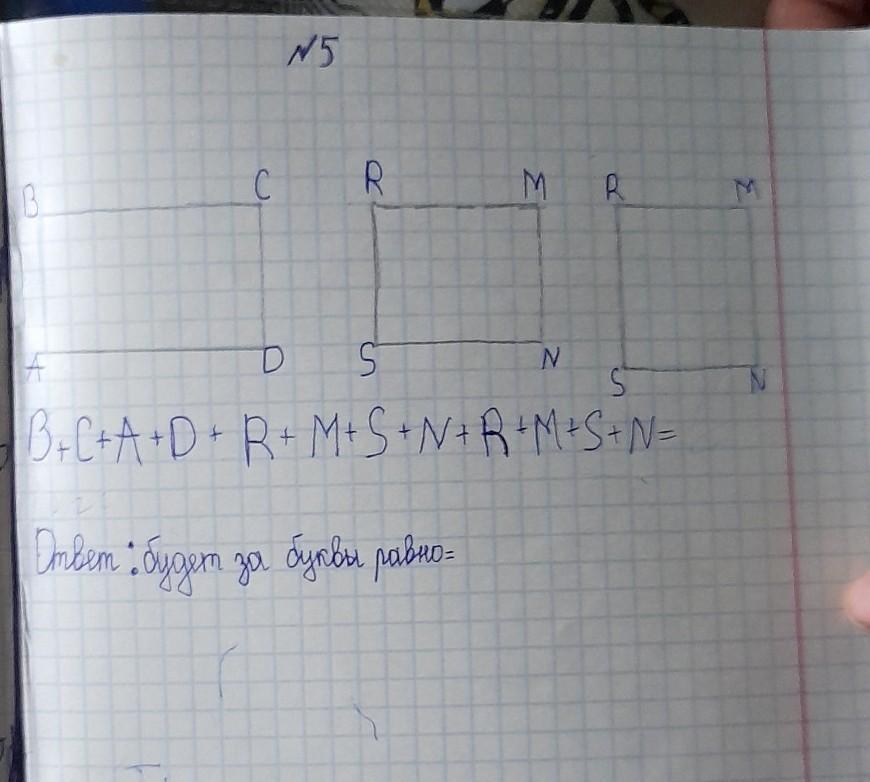 №5
B C R M R M
A D S N S N
B+C+A+D+R+M+S+N+R+M+S+N=
Ответ: будет за буквы равно=